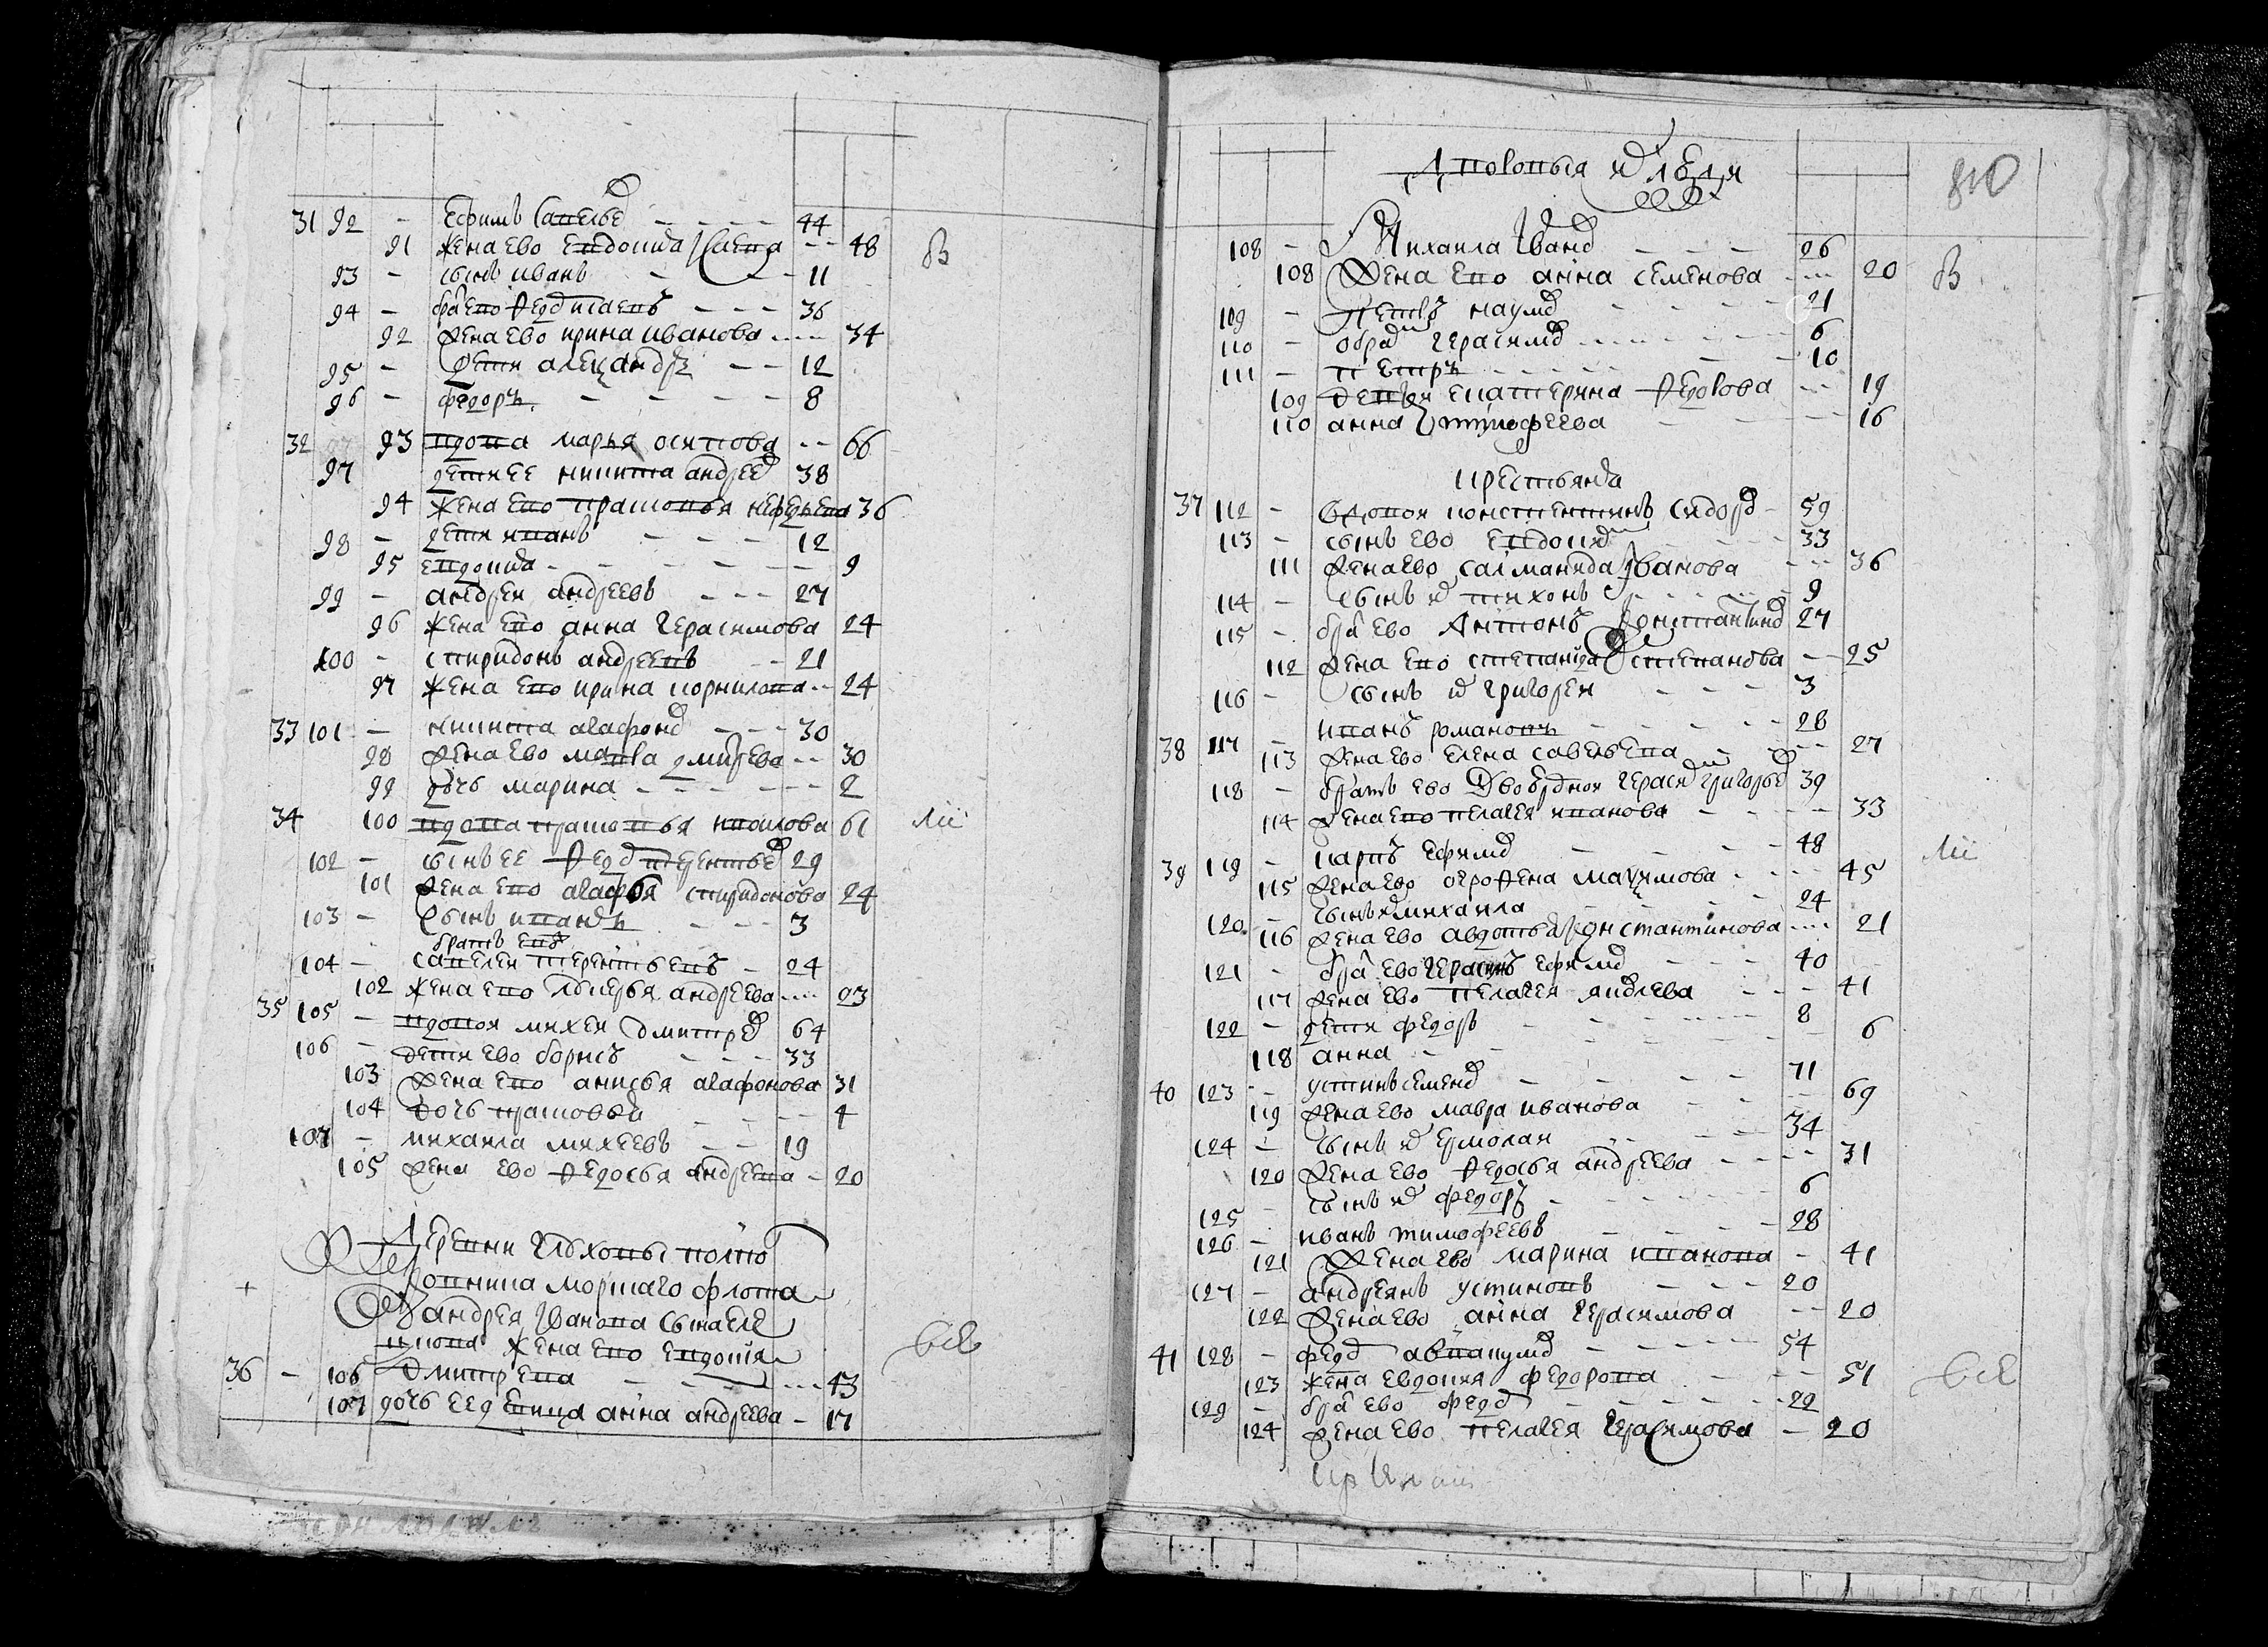 31 92 - Ефимъ Савелье - - - - 44
91 жена ево Евдокиа Исаева - - 48 В
93 - сынъ иванъ - - 11
94 - бра ево Федо исаевъ - - - 36
92 жена ево ирина иванова - - - 34
95 - дети александръ - - 12
96 - федоръ - - - - 8
32 93 вдова марья осипова - - 66
97 дети ее никита андрее 38
94 жена ево прасковья 36
98 - дети иванъ - - - 12
95 евдокиа - - - - - - 9
99 - андреи андреевъ - - - 27
96 жена ево анна герасимова 24
100 - спиридонъ андреевъ - - 21
97 жена ево ирина корнилова - - 24
33 101 - никита агафоно - - - 30
98 жена ево мавра дмитрева - - 30
99 дочь марина - - - - - - - 2
34 100 вдова прасковья 61
102 - сынъ ее Федо терентье 29
101 жена ево агафья спиридонова 24
103 - сынъ иванъ - - - 3
братъ ево
104 - савелеи терентьевъ - 24
102 жена ево андреева - - - 23
35 105 - вдовои михеи дмитрее 64
106 - дети ево борисъ - - - 33
103 жена ево анисья агафонова 31
104 дочь прасковья - - - - 4
107 - михаила михеевъ - - 19
105 жена ево Федосья андреева - 20
Деревни помо
Ковника морского флота
андрея Иванова сына
жена ево евдокия
36 - 106 Дмитрева - - - - - 43
107 дочь ее девица анна андреева - 17
810
Дворовыя люди
108 - Михаила Ивано - - - 26
108 жена ево анна семенова - - - 20 В
109 - Петръ наумо - - - - 21
110 - обра герасимо - - - - - 6
111 - петръ - - - - - 10
109 девки екатерина Федорова - - 19
110 анна тимофеева - - - - 16
крестьяня
37 112 - вдовои констентинъ сидоро - 59
113 - сынъ ево евдоки - - - - 33
111 жена ево саламанида Иванова - - - 36
114 - сынъ и тихонъ - - - - - 9
115 - бра ево Антонъ Константино 27
112 жена ево степанида степанова - - 25
116 - сынъ и григореи - - - - 3
иванъ романовъ - - - - - 28
38 117 - 113 жена ево елена савельева - - - 27
118 - братъ ево Двоюроднои гераси григорье 39
114 жена ево пелагея иванова - - - - 33
39 119 - карпъ ефимо - - - - 48
115 жена ево огрофена максимова - - - - 45
120 - сынъ и михаила - - - - 24
116 жена ево авдотья Константинова - - - 21
121 - бра ево герасимъ ефимо - - - 40
117 жена ево пелагея яковлева - - - - 41
122 - дети федоръ - - - - - - 8
118 анна - - - - - - 6
40 123 - устинъ семено - - - - 71
119 жена ево мавра иванова - - - - 69
124 - сынъ и ермолаи - - - - 34
120 жена ево Федосья андреева - - - - 31
125 - сынъ и федоръ - - - - - - 6
126 - иванъ тимофеевъ - - - - 28
121 жена ево марина иванова - 41
127 - андреянъ устиновъ - - - 20
122 жена ево анна герасимова - - 20
41 128 - федо авакумо - - - - 54
123 жена евдокия федорова - - - 51
129 - бра ево федо - - - - - - 22
124 жена ево пелагея герасимова - 20